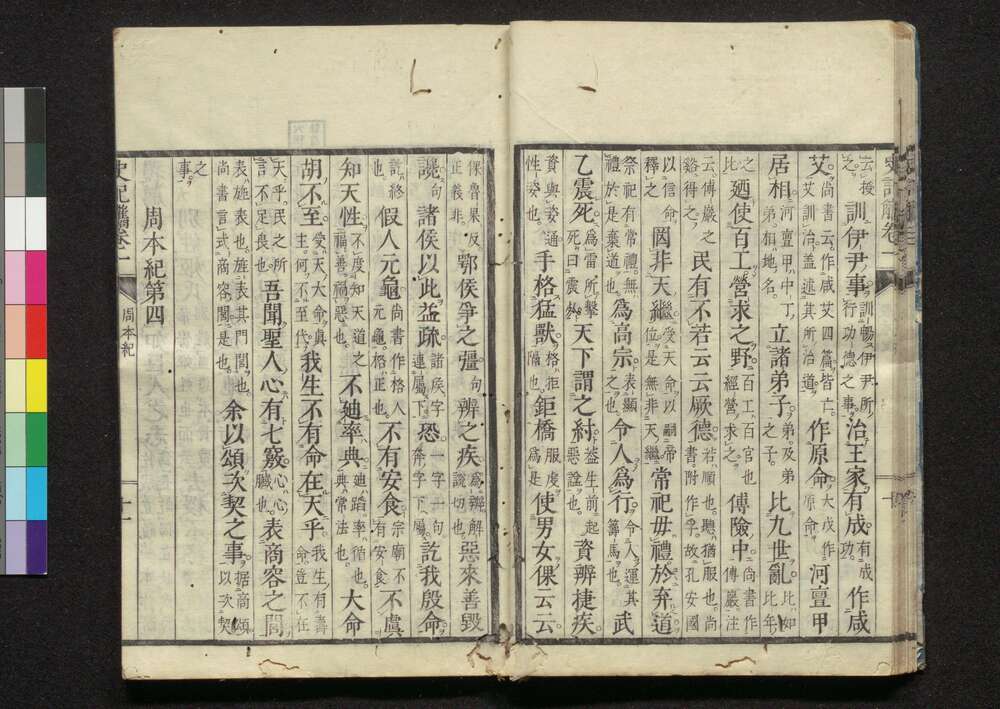 云授之 訓伊尹事 訓暢伊尹所行功德之事 治王家有成 有成功 作咸
艾 尚書云作咸艾四篇皆亡艾訓治蓋述其所治道 作原命 大戊作原命 河亶甲
居相 河亶甲中丁弟相地名 立諸弟子 弟及弟之子 比九世亂 比如比年
比之 廼使百工營求之野 百工百官也經營求之 傅險中 尚書作傅巖注
云傅巖之谿得之 民有不若云云厥德 若順也聽猶服也尚書附作孚故孔安國
以信命釋之 罔非天繼 受天命以嗣帝位是無非天繼 常祀毋禮於弃道
祭祀有常禮無禮於是棄道也 為高宗 表顯也 令人為行 令人運其籌馬也 武
乙震死 為雷所擊死曰震 天下謂之紂 生前起惡 也 資辨捷疾
資與姿通性姿也 手格猛獸 格拒隔也 鉅橋 橋服虔為是 使男女倮云云
保魯果反正義非 鄂侯爭之彊 句 辨之疾 為辨解說切也 惡來善毀
讒 句 諸侯以此益疏 諸侯字連屬下 恐 一字一句奔字下屬 訖我殷命
訖終也 假人元龜 尚書作格人元龜格正也 不有安食 宗廟不有安食 不虞
知天性 不度知天道之福善禍惡也 不廸率典 廸蹈率循也典常法也 大命
胡不至 受天大命眞主何不至代 我生不有命在天乎 我生有壽命豈不在
天乎民之所言不足畏也 吾聞聖人心有七竅 心心臓也 表商容之閭
表旌表也旌表其門閭也尚書言式商容閭是也 余以頌次契之事 據商頌以次契
之事
周本紀第四
史記觽卷一 周本紀 十一